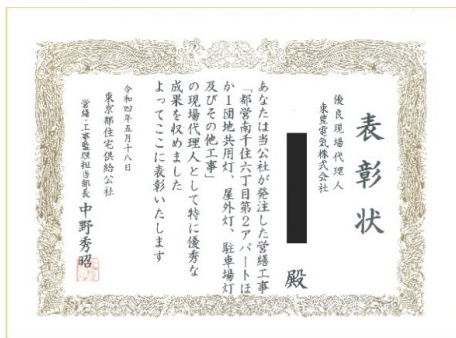 表彰状
優良現場代理人
東豊電気株式会社
殿
あなたは当公社が発注した営繕工事
「都営南千住六丁目第2アパートほ
か1団地共用灯、屋外灯、駐車場灯
及びその他工事」
の現場代理人として特に優秀な
成果を収めました
よってここに表彰いたします
令和四年五月十八日
東京都住宅供給公社
営繕・工事監理担当部長 中野秀昭